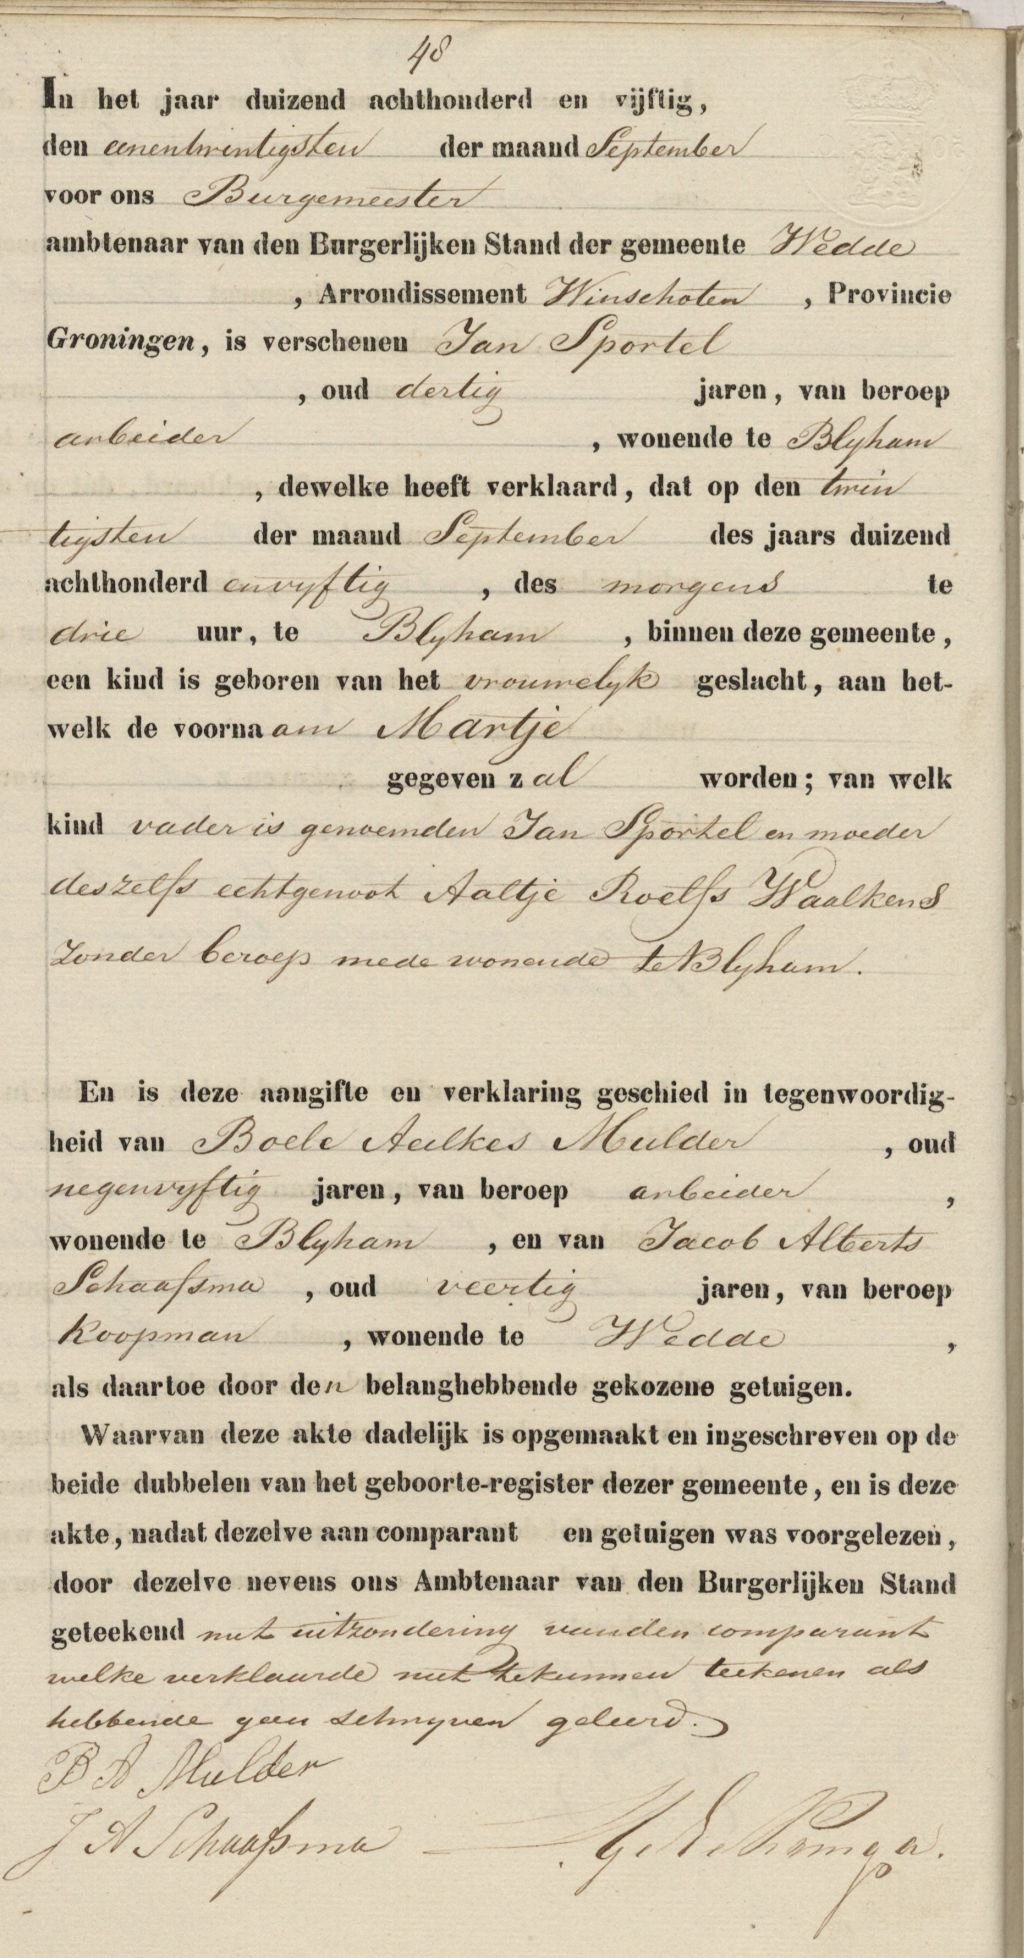 48
In het jaar duizend achthonderd en vijftig,
den eenentwintigsten der maand September
voor ons Burgemeester
ambtenaar van den Burgerlijken Stand der gemeente Wedde
, Arrondissement Winschoten , Provincie
Groningen, is verschenen Jan Sportel
, oud dertig jaren, van beroep
arbeider , wonende te Blyham
, dewelke heeft verklaard, dat op den twin
tigsten der maand September des jaars duizend
achthonderd envyftig , des morgens te
drie uur, te Blyham , binnen deze gemeente,
een kind is geboren van het vrouwelyk geslacht, aan het-
welk de voornaam Martje
gegeven zal worden; van welk
kind vader is genoemden Jan Sportel en moeder
deszelfs echtgenoot Aaltje Roelfs Waalkens
zonder beroep mede wonende te Blyham.
En is deze aangifte en verklaring geschied in tegenwoordig-
heid van Boele Aeilkes Mulder , oud
negenvyftig jaren, van beroep arbeider ,
wonende te Blyham , en van Jacob Alberts
Schaafsma , oud veertig jaren, van beroep
Koopman , wonende te Wedde ,
als daartoe door den belanghebbende gekozene getuigen.
Waarvan deze akte dadelijk is opgemaakt en ingeschreven op de
beide dubbelen van het geboorte-register dezer gemeente, en is deze
akte, nadat dezelve aan comparant en getuigen was voorgelezen,
door dezelve nevens ons Ambtenaar van den Burgerlijken Stand
geteekend met uitzondering vanden comparant
welke verklaarde niet tekunnen teekenen als
hebbende geen schryven geleerd.
B A Mulder
J A Schaafsma